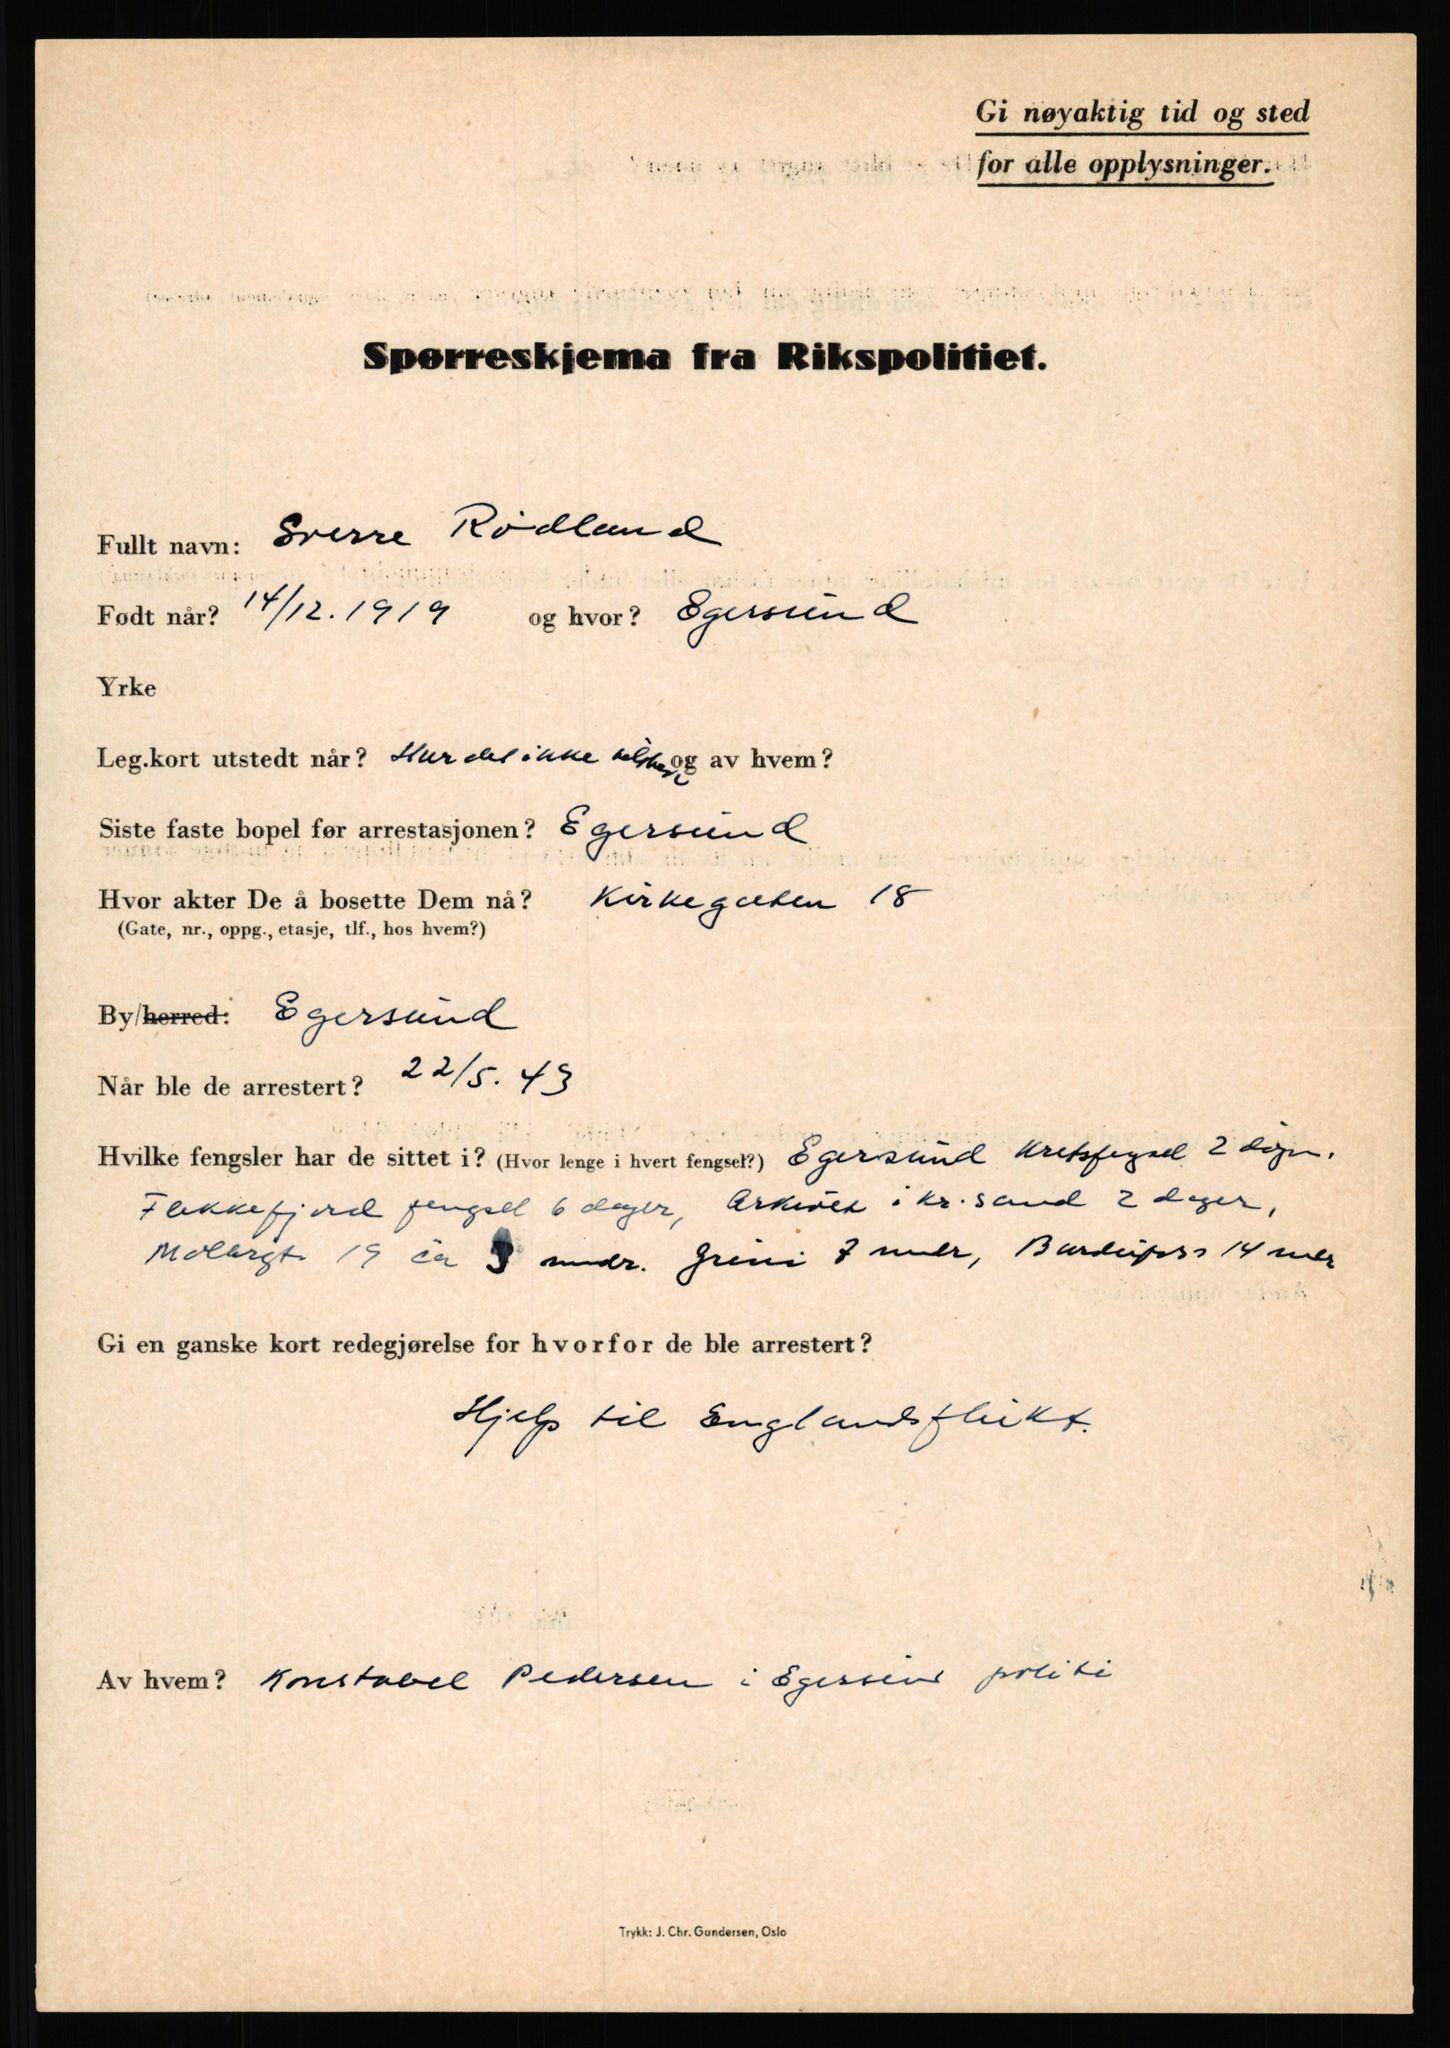 Gi nøyaktig tid og sted
for alle opplysninger.
Spørreskjema fra Rikspolitiet.
Fullt navn: Sverre Rødland
Født når? 14/12. 1919 og hvor? Egersund
Yrke
Leg.kort utstedt når? Har det ikke og av hvem?
Siste faste bopel før arrestasjonen? Egersund
Hvor akter De å bosette Dem nå? Kirkegaten 18
(Gate, nr., oppg., etasje, tlf., hos hvem?)
By/herred: Egersund
Når ble de arrestert? 22/5. 43
Hvilke fengsler har de sittet i? (Hvor lenge i hvert fengsel?) Egersund Kretsfengsel 2 døgn.
Flekkefjord fengsel 6 dager, Arkivet i kr. sand 2 dager,
Møllergt. 19 ca 3 mndr. Grini 7 mndr, Bardufoss 14 mndr
Gi en ganske kort redegjørelse for hvorfor de ble arrestert?
Hjelp til Englandsflukt.
Av hvem? Konstabel Pedersen i Egersund politi
Trykk: J. Chr. Gundersen, Oslo